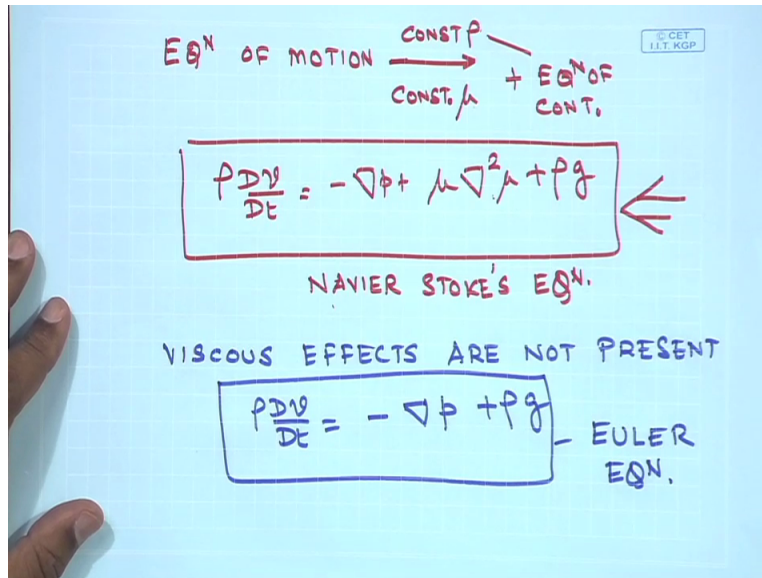 © CET
I.I.T. KGP
EQᴺ OF MOTION CONST ρ
CONST. μ + EQᴺ OF
CONT.
ρ Dv/Dt = - ∇p + μ ∇² μ + ρg
NAVIER STOKE'S EQᴺ.
VISCOUS EFFECTS ARE NOT PRESENT
ρ Dv/Dt = - ∇p + ρg
- EULER
EQN.